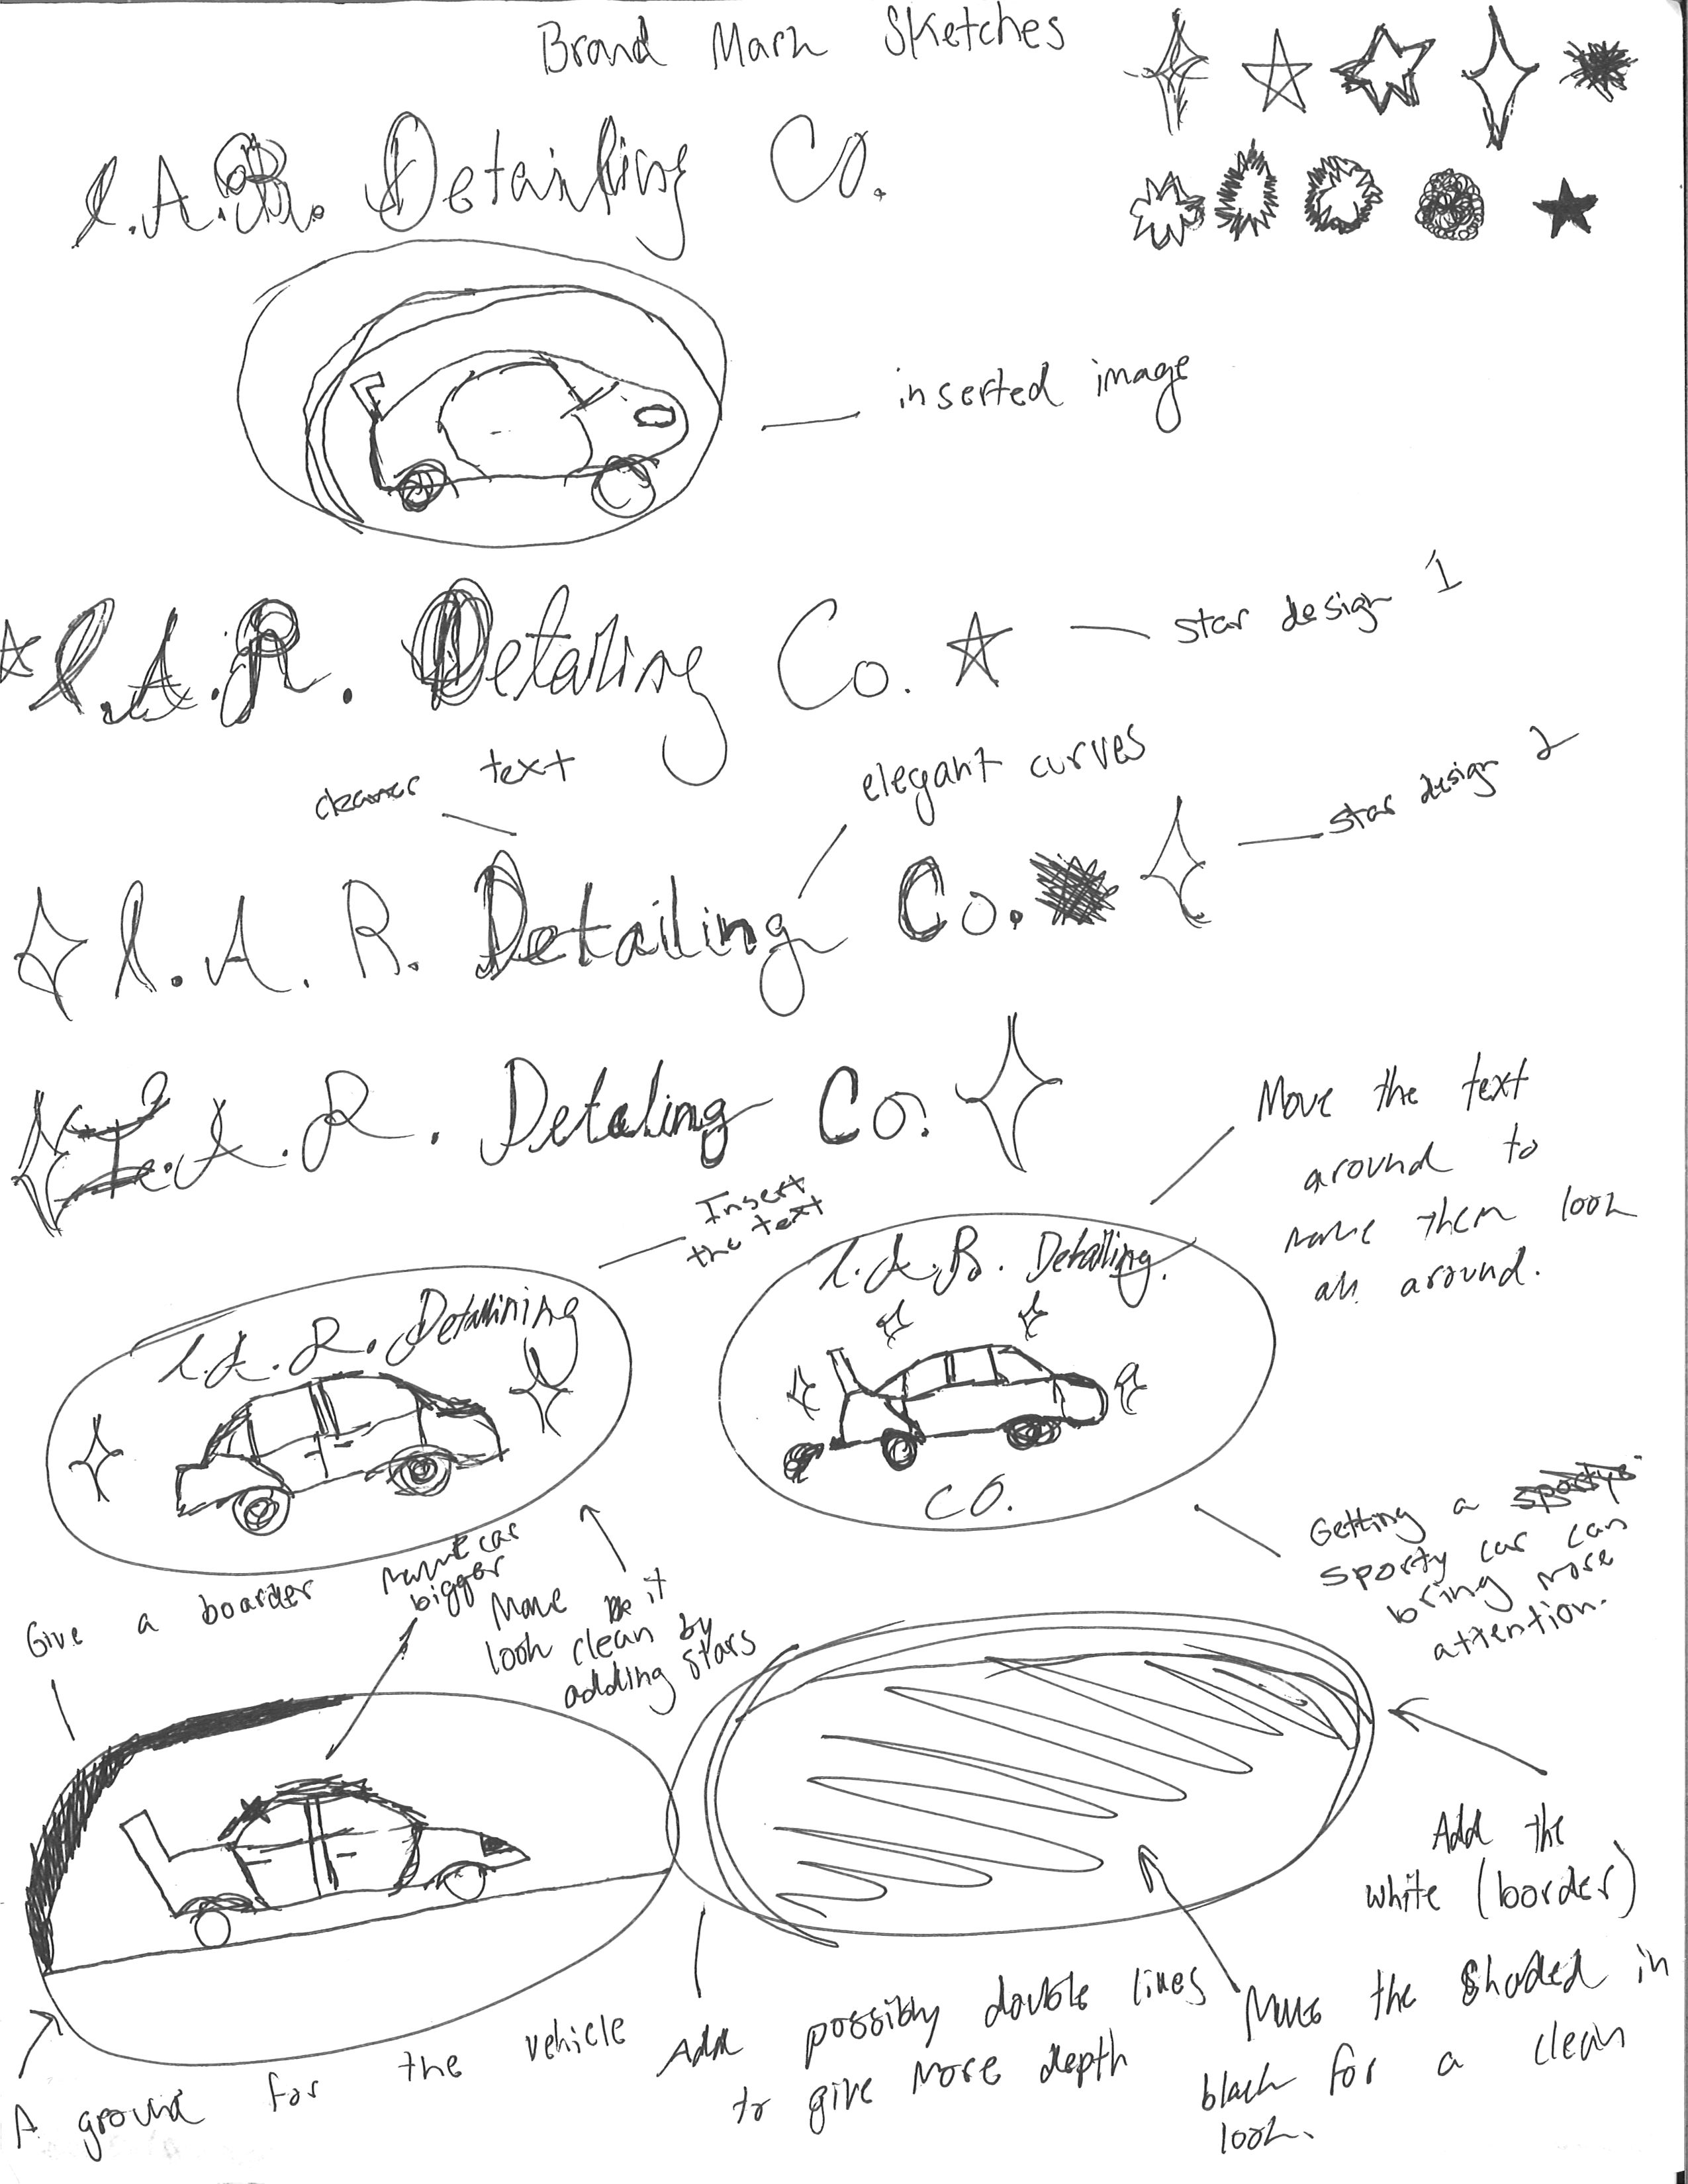 Brand Mark Sketches
I.A.R. Detailing Co.
inserted image
I.A.R. Detailing Co.
star design 1
cleaner text
elegant curves
star design 2
I.A.R. Detailing Co.
I.A.R. Detaling Co.
Insert
the text
Move the text
around to
make them look
all around.
I.A.R. Detailining
I.A.R. Detailing.
CO.
Getting a
sporty car can
bring more
attention.
Give a boarder
make car
bigger
Make it
look clean by
adding stars
Add the
white (border)
A ground for the vehicle
Add possibly double lines
to give more depth
Make the shaded in
black for a clean
look.